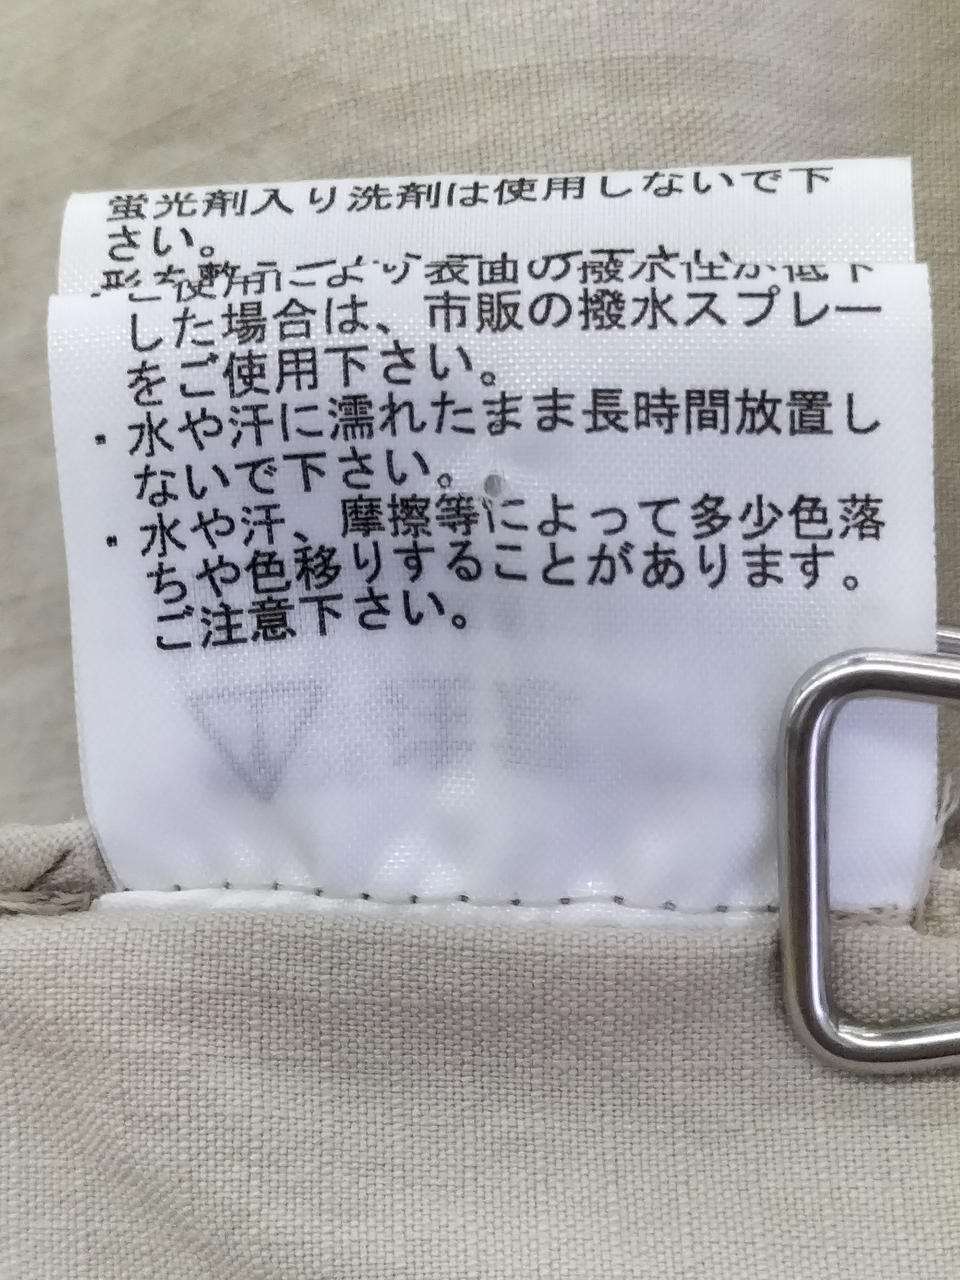 蛍光剤入り洗剤は使用しないで下
さい。
・ご使用により表面の撥水性が低下
した場合は、市販の撥水スプレー
をご使用下さい。
・水や汗に濡れたまま長時間放置し
ないで下さい。
・水や汗、摩擦等によって多少色落
ちや色移りすることがあります。
ご注意下さい。